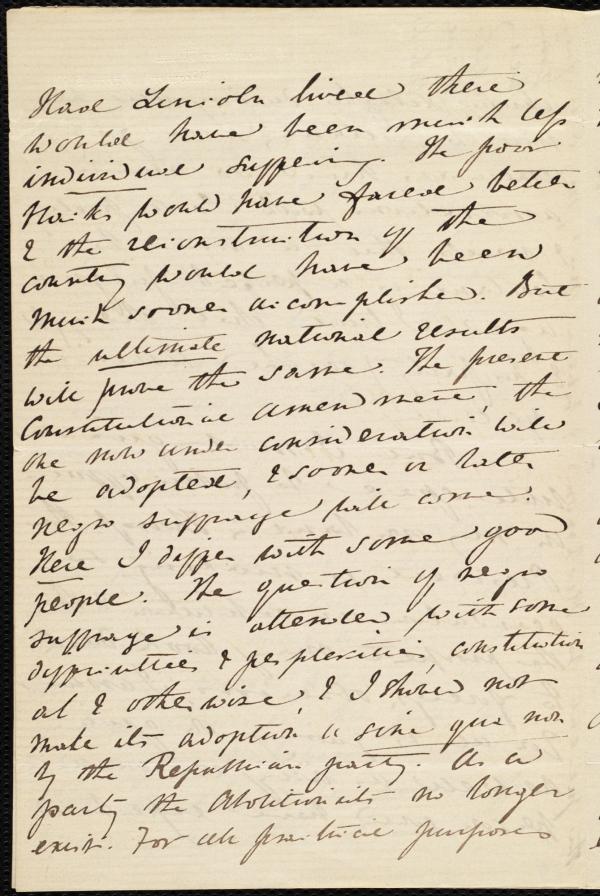 Had Lincoln lived there
would have been much less
individual suffering. The poor
blacks would have fared better
& the reconstruction of the
country would have been
much sooner accomplished. But
the ultimate national results
will prove the same. The present
Constitutional amendment, the
one now under consideration will
be adopted, & sooner or later
negro suffrage will come.
Here I differ with some good
people. The question of negro
suffrage is attended with some
difficulties & perplexities, constitution
al & otherwise, & I should not
make its adoption a sine qua non
by the Republican party. As a
party the Abolitionists no longer
exist. For all practical purposes